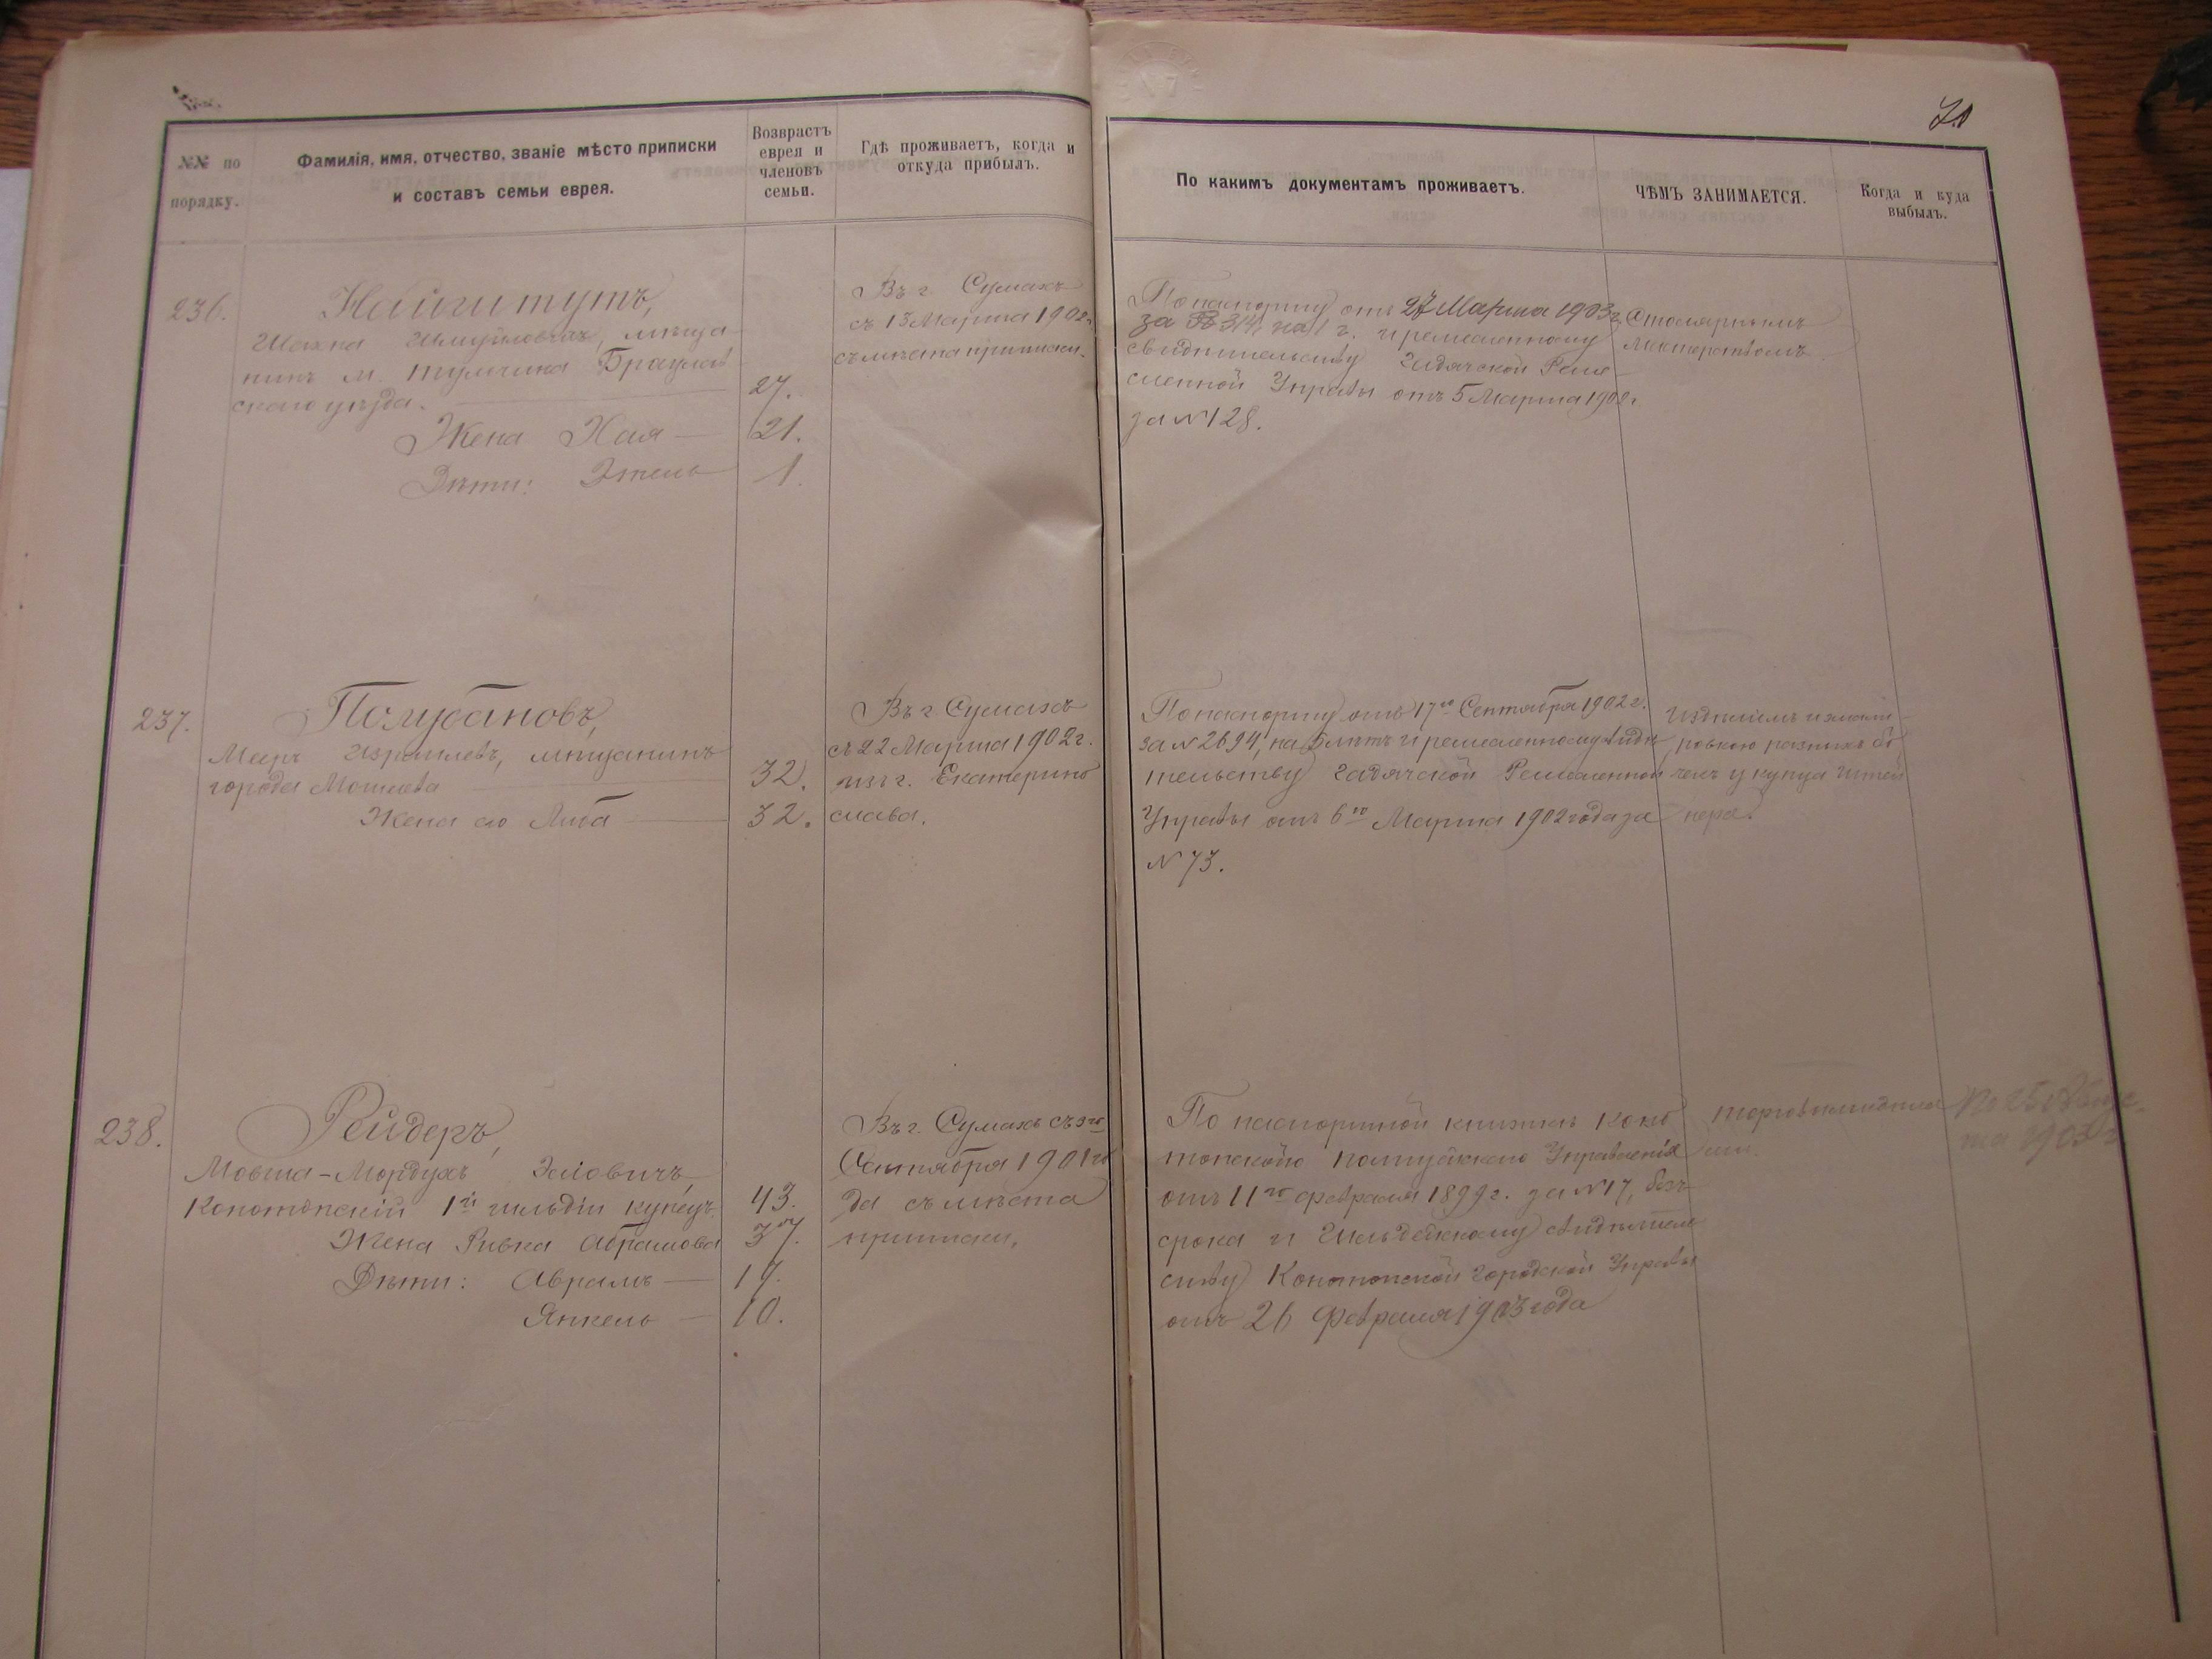 70
NN по порядку.
Фамилія, имя, отчество, званіе мѣсто приписки
и составъ семьи еврея.
Возврастъ
еврея и
членовъ
семьи.
Гдѣ проживаетъ, когда и
откуда прибылъ.
По какимъ документамъ проживаетъ.
ЧѢМЪ ЗАНИМАЕТСЯ.
Когда и куда
выбылъ.
236.
Шахна Шмуйловичъ, мѣща-
нинъ м. Тульчина Брацлав
скаго уѣзда. 27.
Жена Хая 21.
Дѣти: Этель 1.
Въ г. Сумахъ
съ 13 Марта 1902 г.
съ мѣста приписки.
По паспорту отъ 27 Марта 1903 г.
за № 314 на 1 г. и ремесленному
свидѣтельству Гадячской Реме-
сленной Управы отъ 5 Марта 1902 г.
за № 128.
Столярнымъ
мастерствомъ.
237.
Мееръ Израилевъ, мѣщанинъ
города Могилева 32.
Жена его Либа 32.
Въ г. Сумахъ
съ 22 Марта 1902 г.
изъ г. Екатерино
слава.
По паспорту отъ 17го Сентября 1902 г.
за № 2694, на 5 лѣтъ и ремесленному свидѣ
тельству Гадячской Ремесленной
Управы отъ 6го Марта 1902 года за
№ 73.
Издѣліемъ и
ровкою разныхъ бо
чекъ у купца Штей
нера.
238.
Рейдеръ,
Мовша-Мордухъ
Конотопскій 1й гильдіи купецъ. 43.
Жена Ривка Абрамова 37.
Дѣти: Аврамъ 17.
Янкель 10.
Въ г. Сумахъ съ
Сентября 1901 го
да съ мѣста
приписки.
По паспортной книжкѣ Коно
топскаго Полицейскаго Управленія
отъ 11го Февраля 1899 г. за № 17, безъ
срока и Гильдейскому свидѣтель
ству Конотопской Городской Управы
отъ 26 Февраля 1903 года
По 25 Авгус-
та 1903 г.